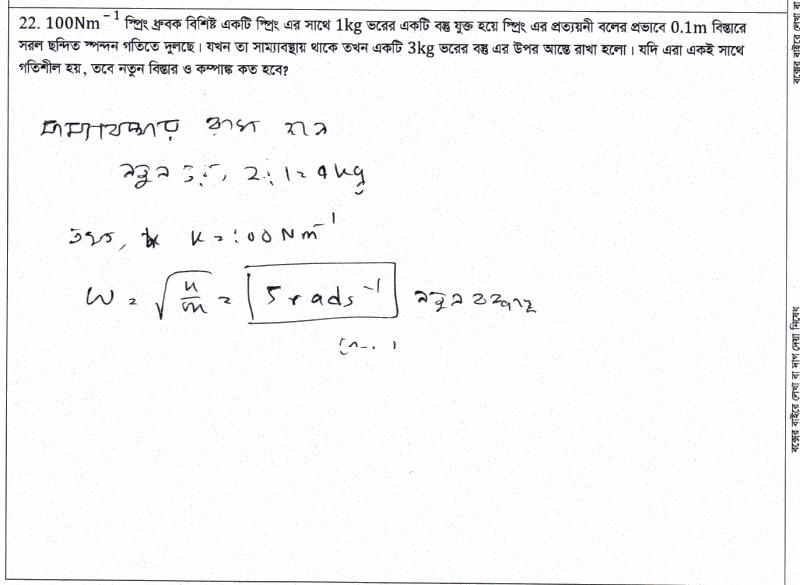 22. 100Nm⁻¹ স্প্রিং ধ্রুবক বিশিষ্ট একটি স্প্রিং এর সাথে 1kg ভরের একটি বস্তু যুক্ত হয়ে স্প্রিং এর প্রত্যয়নী বলের প্রভাবে 0.1m বিস্তারে
সরল ছন্দিত স্পন্দন গতিতে দুলছে। যখন তা সাম্যাবস্থায় থাকে তখন একটি 3kg ভরের বস্তু এর উপর আস্তে রাখা হলো। যদি এরা একই সাথে
গতিশীল হয়, তবে নতুন বিস্তার ও কম্পাঙ্ক কত হবে?
নতুন = 4 kg
K = 100 Nm⁻¹
ω = √(k/m) = 5 rads⁻¹ নতুন
বক্সের বাইরে লেখা বা দাগ দেয়া নিষেধ